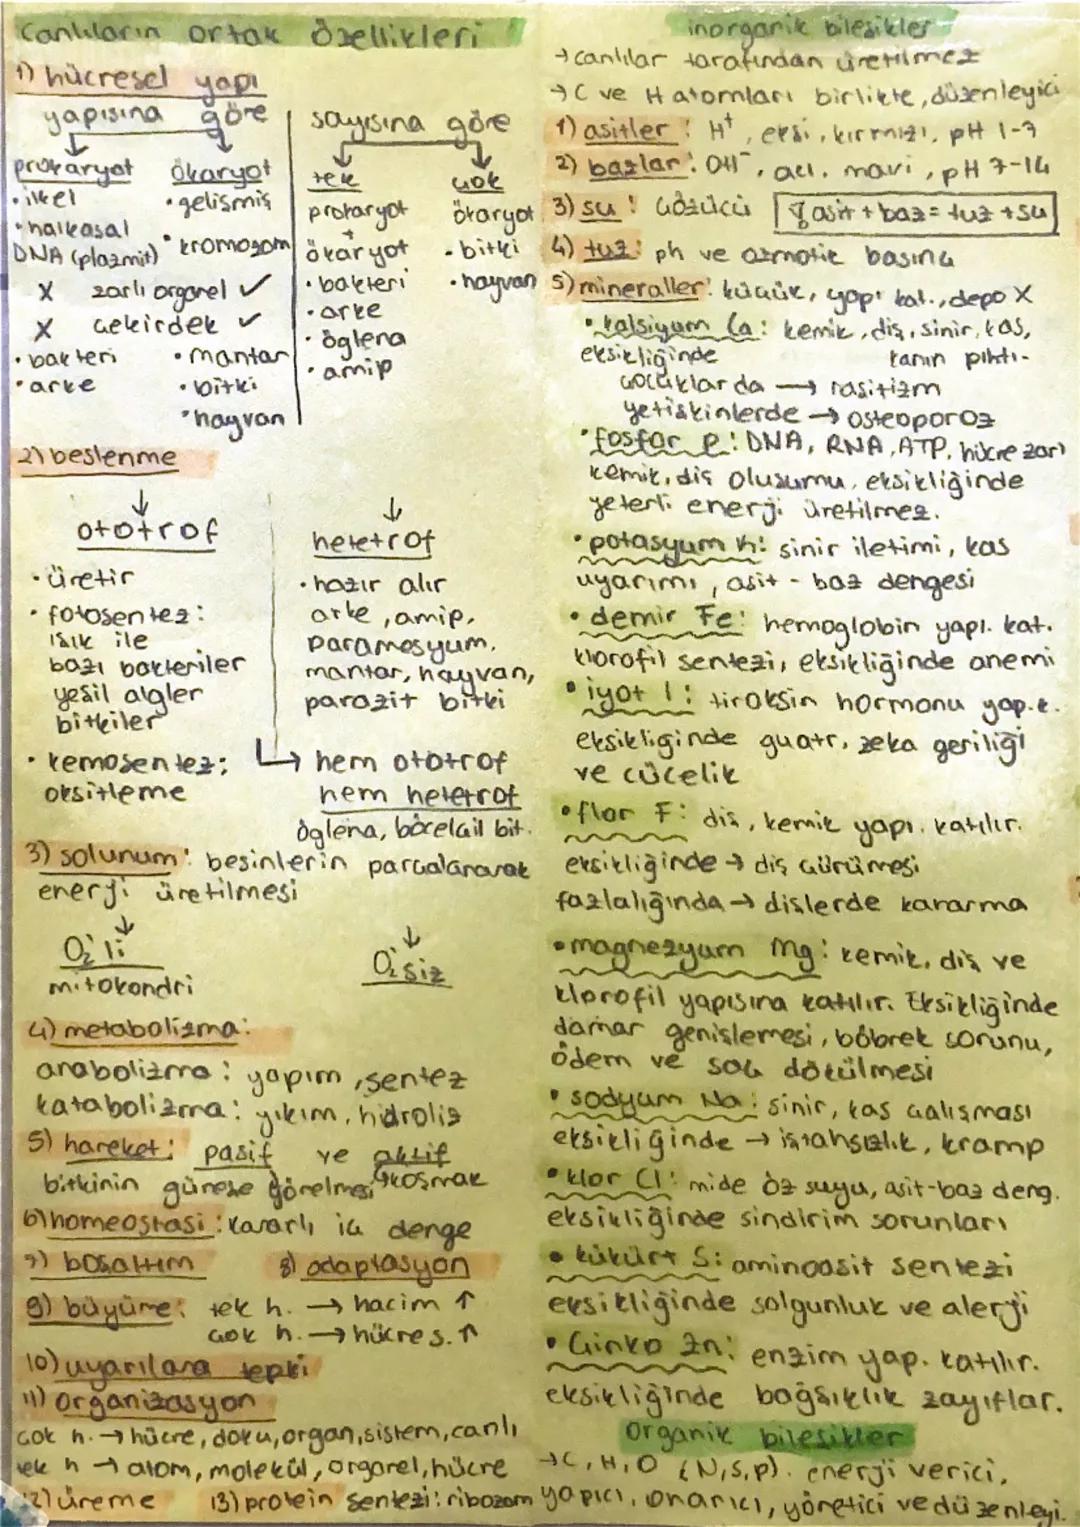 Canlıların ortak özellikleri
1) hücresel yapı
yapısına göre
prokaryot
• ilkel
• halkasal
DNA (plazmit)
ökaryot
• gelişmiş
• kromozom
X zarlı organel ✓
X çekirdek ✓
• bakteri
• arke
• mantar
• bitki
• hayvan
sayısına göre
tek
prokaryot
ökaryot
• bakteri
• arke
• öglena
• amip
çok
ökaryot
• bitki
• hayvan
2) beslenme
ototrof
• üretir
• fotosentez:
ışık ile
bazı bakteriler
yeşil algler
bitkiler
• kemosentez:
oksitleme
hetetrof
• hazır alır
arke, amip,
paramesyum,
mantar, hayvan,
parazit bitki
→ hem ototrof
hem hetetrof
öglena, böcekçil bit.
3) solunum: besinlerin parçalanarak
enerji üretilmesi
O₂'li
mitokondri
O₂'siz
4) metabolizma:
anabolizma: yapım, sentez
katabolizma: yıkım, hidroliz
5) hareket: pasif ve aktif
bitkinin güneşe yönelmesi ↳koşmak
6) homeostasi: kararlı iç denge
7) boşaltım 8) adaptasyon
9) büyüme: tek h. → hacim ↑
çok h. → hücre s. ↑
10) uyarılara tepki
11) organizasyon
çok h. → hücre, doku, organ, sistem, canlı
tek h → atom, molekül, organel, hücre
12) üreme 13) protein sentezi: ribozom
inorganik bileşikler
→ canlılar tarafından üretilmez
→ C ve H atomları birlikte, düzenleyici
1) asitler: H⁺, ekşi, kırmızı, pH 1-7
2) bazlar: OH⁻, acı, mavi, pH 7-14
3) su: çözücü asit + baz = tuz + su
4) tuz: ph ve ozmotik basınç
5) mineraller: küçük, yapı kat., depo X
• kalsiyum Ca: kemik, diş, sinir, kas,
kanın pıhtı-
eksikliğinde
çocuklarda → raşitizm
yetişkinlerde → osteoporoz
• fosfor P: DNA, RNA, ATP, hücre zarı
kemik, diş oluşumu, eksikliğinde
yeterli enerji üretilmez.
• potasyum K: sinir iletimi, kas
uyarımı, asit - baz dengesi
• demir Fe: hemoglobin yapı. kat.
klorofil sentezi, eksikliğinde anemi
• iyot I: tiroksin hormonu yap. k.
eksikliginde guatr, zeka geriliği
ve cücelik
• flor F: diş, kemik yapı. katılır.
eksikliğinde → diş çürümesi
fazlalığında → dişlerde kararma
• magnezyum Mg: kemik, diş ve
klorofil yapısına katılır. Eksikliğinde
damar genişlemesi, böbrek sorunu,
ödem ve saç dökülmesi
• sodyum Na: sinir, kas çalışması
eksikliğinde → iştahsızlık, kramp
• klor Cl: mide öz suyu, asit-baz deng.
eksikliğinde sindirim sorunları
• kükürt S: aminoasit sentezi
eksikliğinde solgunluk ve alerji
• Çinko Zn: enzim yap. katılır.
eksikliğinde bağşıklık zayıflar.
Organik bileşikler
→ C, H, O (N, S, P). enerji verici,
yapıcı, onarıcı, yönetici ve düzenleyi.